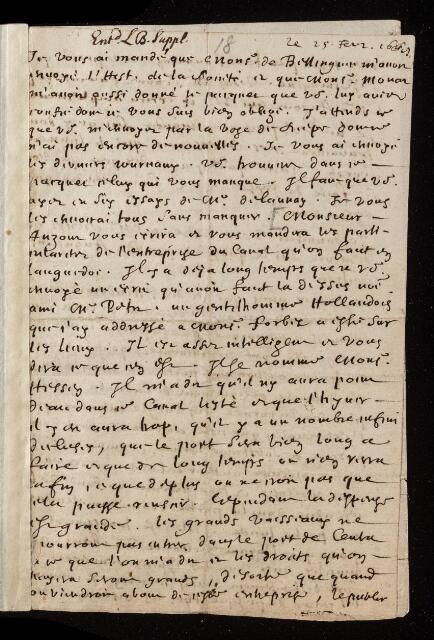 Entd L.B. Suppl. 18 le 25 Fevr. 1668/9
Je vous ai mandé que Mons.r de Bellingueu m'avoit
envoyé l'Hist. de la Comete et que Mons.
m'avoit aussi donné le pacquet que vs. luy aviez
donné dont je vous suis bien obligé. J'attends ce
que vs. m'envoyez par la voye de Dieppe dont je
n'ai pas encore de nouvelles. Je vous ai envoyé
les derniers Journaux. vs. trouverez dans ce
pacquet celuy qui vous manque. Il faut que vs.
ayez eu les essays de Mr. de launay. Je vous
les envoirai tous sans manquer. [Monsieur
Auzout vous ecrira et vous mandera les parti-
cularitez de l'entreprise du Canal qu'on fait en
Languedoc. Il y a deja long temps que je vs.
envoyé un ecrit qu'avoit fait la dessus nôtre
ami Mr. Petit. un gentilhomme Hollandois
que j'ay addressé a Mons. a esté sur
les lieux. Il est assez intelligent et vous
dira ce que c'en est. Il se nomme Mons.
Il m'a dit qu'il n'y aura point
d'eau dans ce Canal l'esté et que l'hyver
il y en aura trop, qu'il y a un nombre infini
d'ecluses, que le port sera bien long a
faire et que de long temps on n'en verra
la fin, et que de plus on ne croit pas que
cela puisse reussir. Cependant la despense
est grande. les grands vaisseaux ne
pourront pas entrer dans le port de Cette
a ce que l'on m'a dit et les droits qu'on
payera seront grands, de sorte que quand
on viendroit a bout de cette entreprise, le public